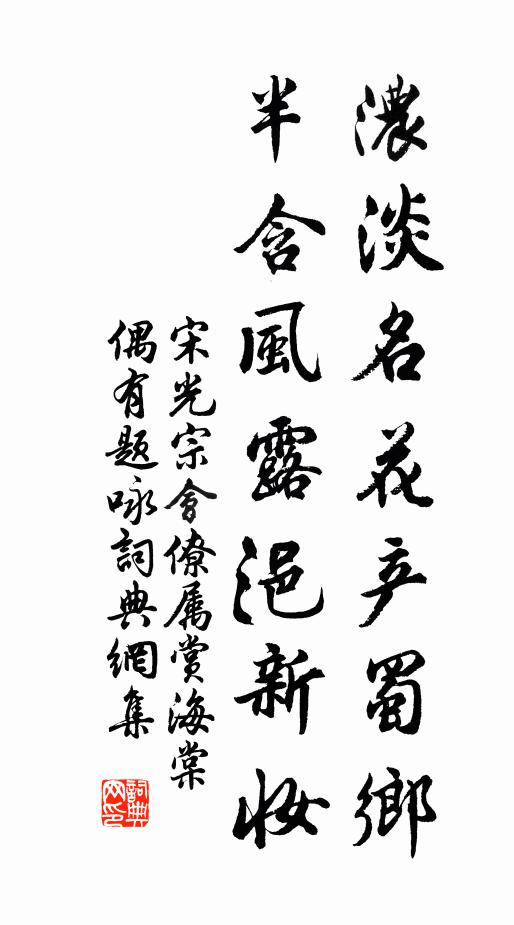 濃淡名花产蜀鄉
半含風露浥新妝
宋光宗會僚属赏海棠
偶有题咏詞典網集
詞典网印